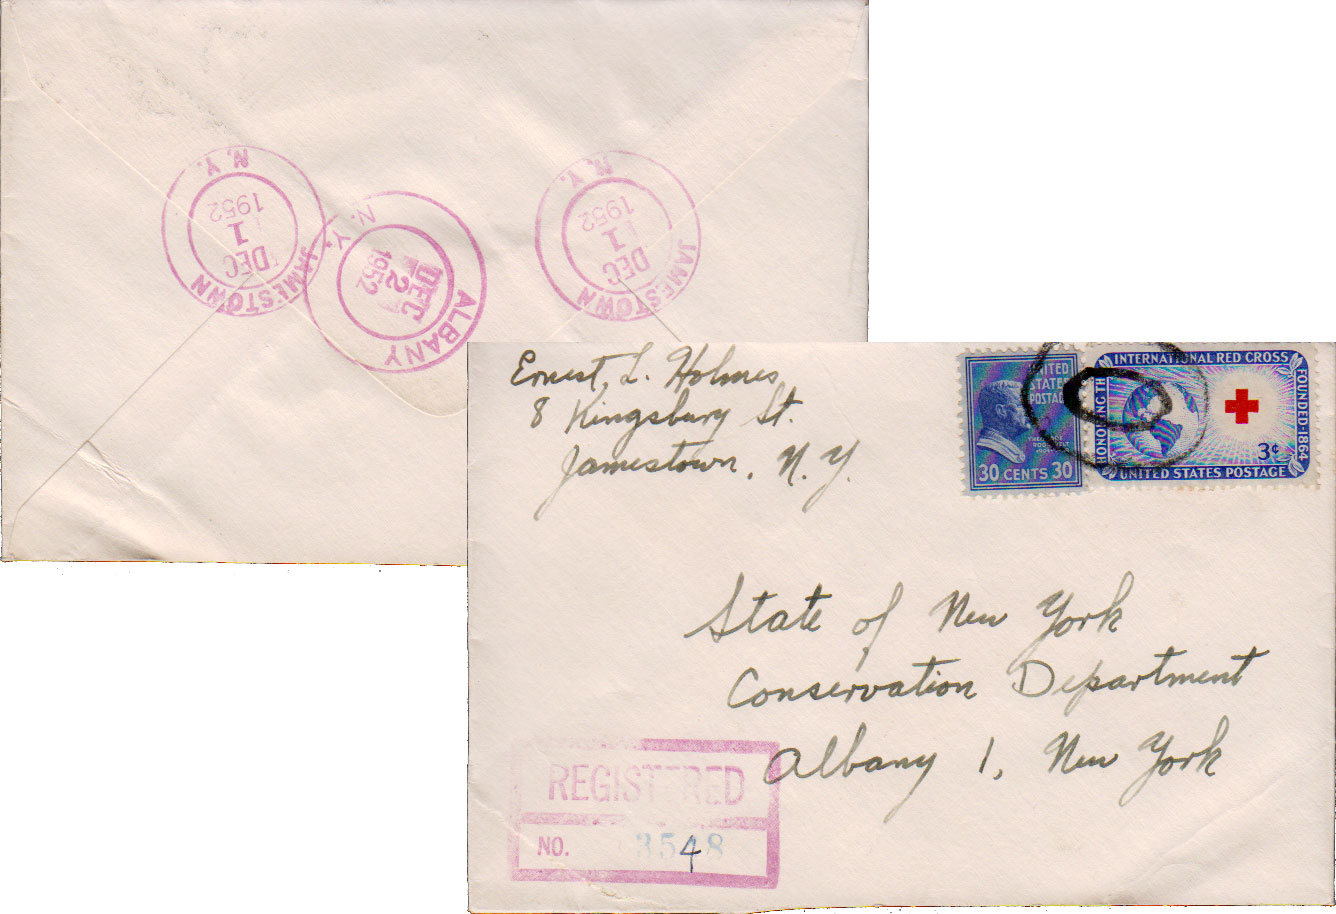 N.Y.
1952
1
DEC
JAMESTOWN
N.Y.
1952
2
DEC
ALBANY
N.Y.
1952
1
DEC
JAMESTOWN
Ernest L. Holmes
8 Kingsbury St.
Jamestown, N.Y.
UNITED
STATES
POSTAGE
THEODORE
ROOSEVELT
30 CENTS 30
HONORING THE
INTERNATIONAL RED CROSS
FOUNDED-1864
3¢
UNITED STATES POSTAGE
State of New York
Conservation Department
Albany 1, New York
REGISTERED
NO. 3548